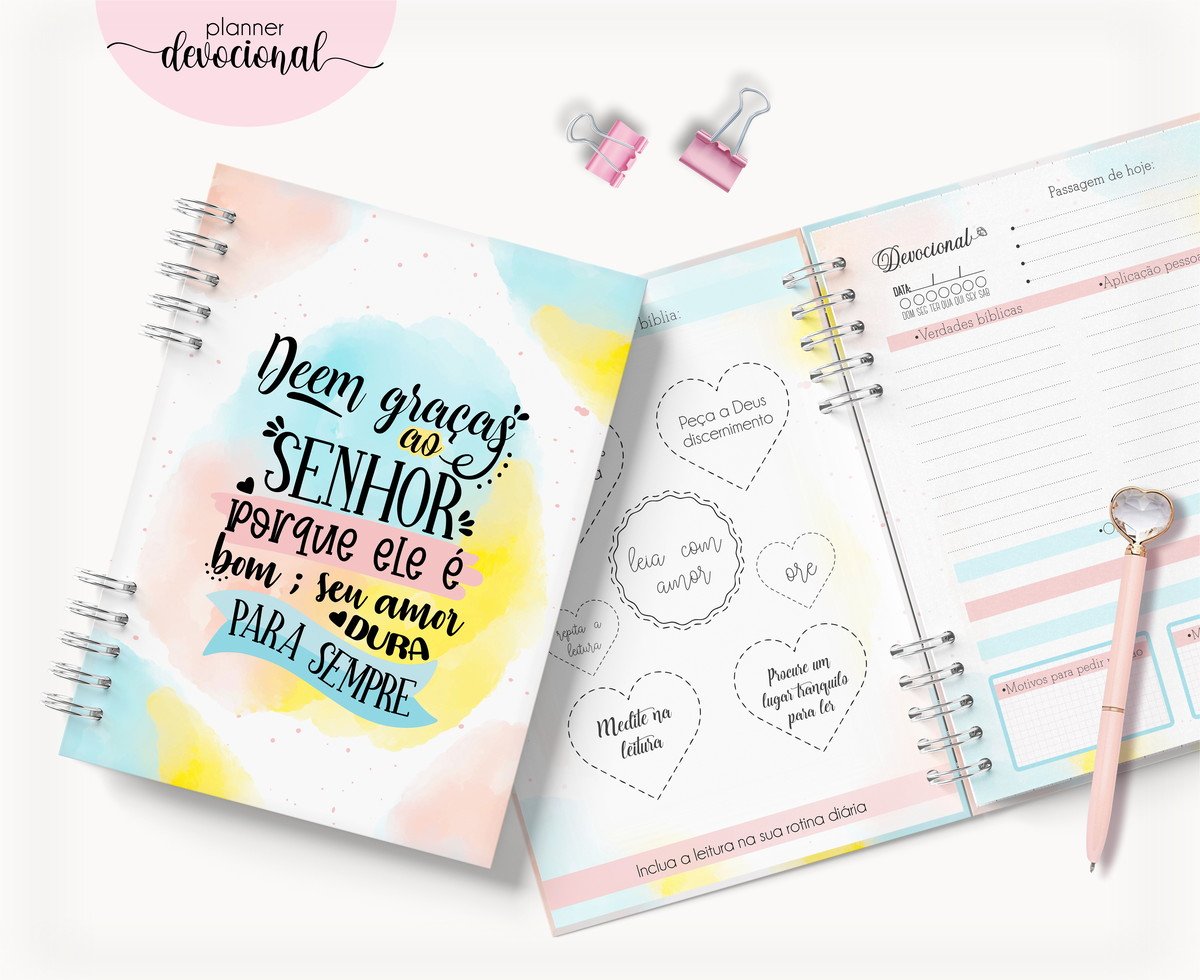 planner
devocional
Deem graças
ao
SENHOR
porque ele é
bom ; seu amor
DURA
PARA SEMPRE
bíblia:
Peça a Deus
discernimento
leia com
amor
ore
repita a
leitura
Procure um
lugar tranquilo
para ler
Medite na
leitura
Inclua a leitura na sua rotina diária
Passagem de hoje:
Devocional
DATA:
DOM SEG TER QUA QUI SEX SAB
•Verdades bíblicas
•Aplicação pessoa
•Motivos para pedir